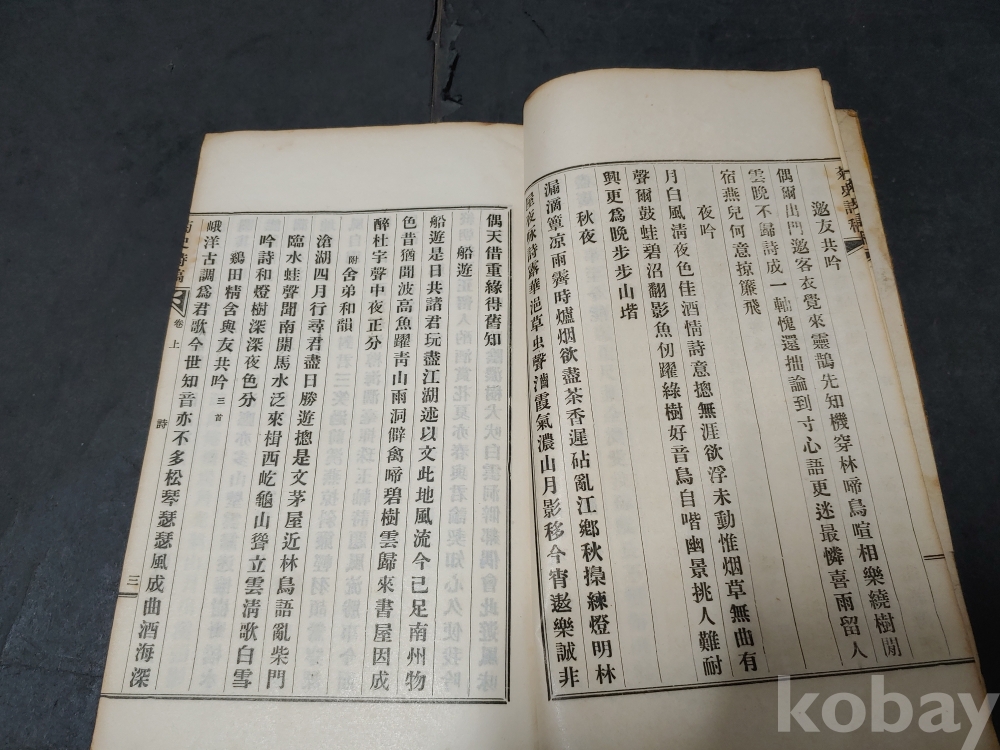 邀友共吟
偶爾出門邀客衣覺來靈鵲先知機穿林啼鳥喧相樂繞樹閒
雲晩不歸詩成一軸愧還拙論到寸心語更迷最憐喜雨留人
宿燕兒何意掠簾飛
夜吟
月白風清夜色佳酒情詩意摠無涯欲浮未動惟烟草無曲有
聲爾鼓蛙碧沼翻影魚仞躍綠樹好音鳥自喈幽景挑人難耐
興更爲晩步步山堦
秋夜
漏滴簟凉雨霽時爐烟欲盡茶香遲砧亂江鄕秋搗練燈明林
屋夜咏詩露華浥草虫聲濇霞氣濃山月影移今宵遨樂誠非
偶天借重緣得舊知
船遊
船遊是日共諸君玩盡江湖述以文此地風流今已足南州物
色昔猶聞波高魚躍靑山雨洞僻禽啼碧樹雲歸來書屋因成
醉杜宇聲中夜正分
附舍弟和韻
滄湖四月行尋君盡日勝遊摠是文茅屋近林鳥語亂柴門
臨水蛙聲聞南開馬水泛來楫西屹龜山聳立雲淸歌白雪
吟詩和燈樹深深夜色分
鷄田精舍與友共吟 三首
峨洋古調爲君歌今世知音亦不多松琴瑟瑟風成曲酒海深
史詩高
卷上
詩
三
kobay